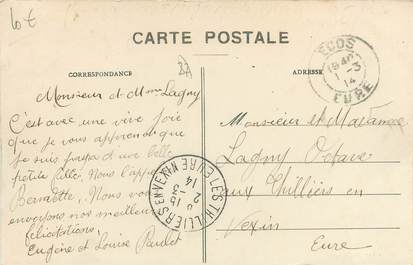 10€
27
CARTE POSTALE
CORRESPONDANCE
ADRESSE
ECOS
19 40
1 - 3
14
EURE
Monsieur et Mme Lagny
C'est avec une vive joie
que je vous apprends que
je suis papa d'une belle
petite fille. Nous l'app
Bernadette, Nous vous
envoyons nos meilleures
félicitations.
Eugène et Louise Paulet
LES THILLIERS-EN-VEXIN
EURE
15
2 - 3
14
Monsieur et Madame
Lagny Octave
aux Thilliers en
Vexin
Eure